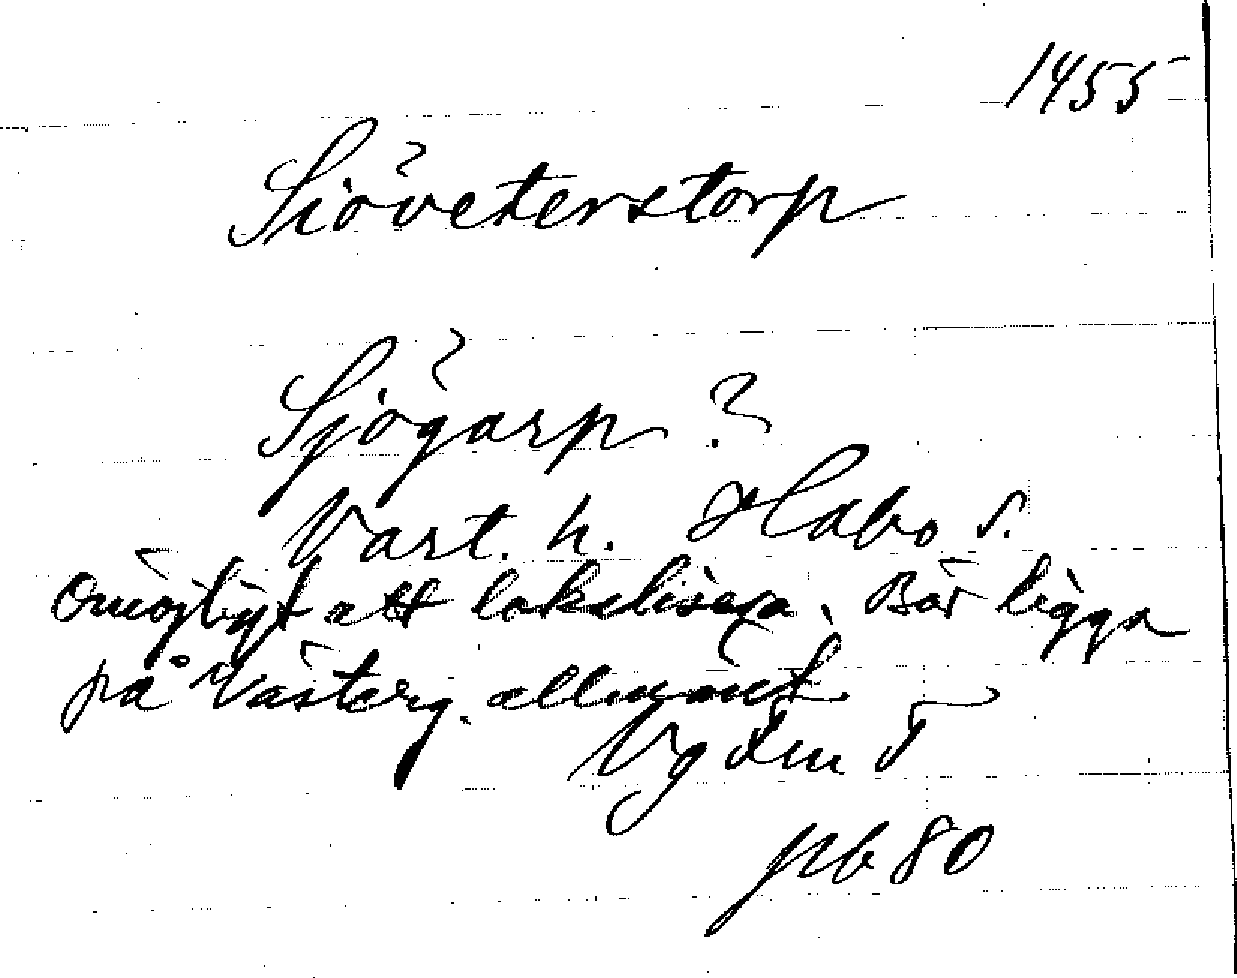 1455
Siöveterstorp
Sjögarp?
Vart. h. Habo s.
Omöjligt att lokalisera. Bör ligga
på Västerg. allmänt
Vg
pb 80